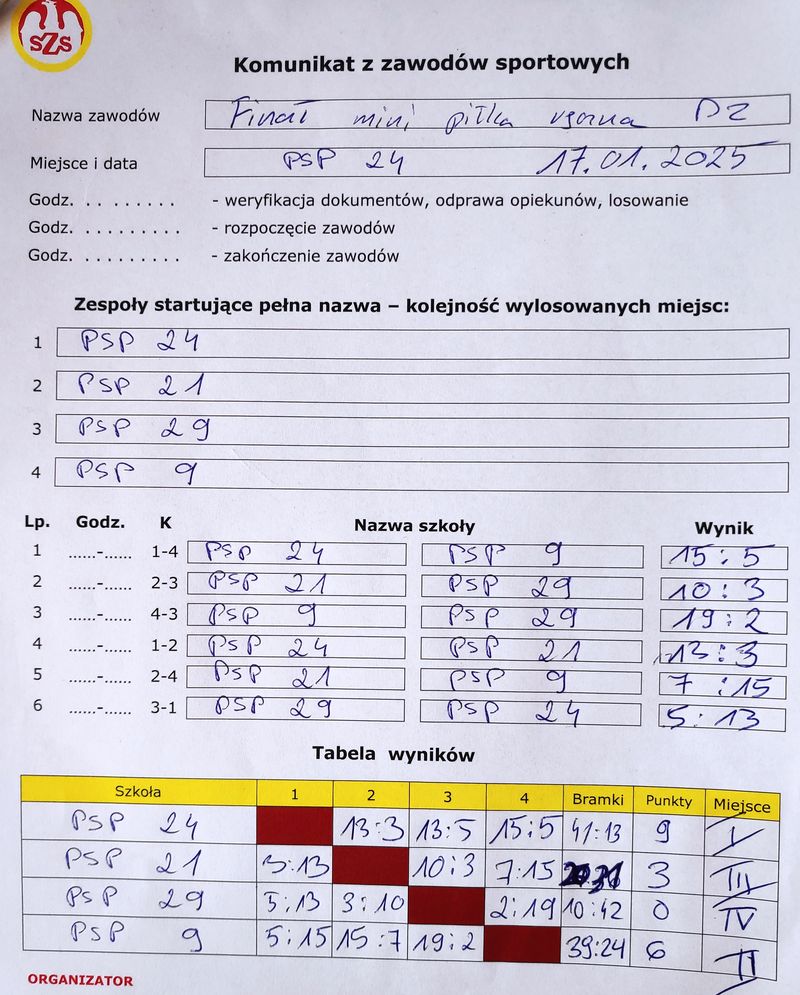 SZS
Komunikat z zawodów sportowych
Nazwa zawodów Finał mini piłka ręczna DZ
Miejsce i data PSP 24 17.01.2025
Godz. . . . . . . . . - weryfikacja dokumentów, odprawa opiekunów, losowanie
Godz. . . . . . . . . . - rozpoczęcie zawodów
Godz. . . . . . . . . . - zakończenie zawodów
Zespoły startujące pełna nazwa – kolejność wylosowanych miejsc:
1 PSP 24
2 PSP 21
3 PSP 29
4 PSP 9
Lp. Godz. K Nazwa szkoły Wynik
1 ......-...... 1-4 PSP 24 PSP 9 15:5
2 ......-...... 2-3 PSP 21 PSP 29 10:3
3 ......-...... 4-3 PSP 9 PSP 29 19:2
4 ......-...... 1-2 PSP 24 PSP 21 13:3
5 ......-...... 2-4 PSP 21 PSP 9 7:15
6 ......-...... 3-1 PSP 29 PSP 24 5:13
Tabela wyników
Szkoła 1 2 3 4 Bramki Punkty Miejsce
PSP 24 13:3 13:5 15:5 41:13 9 I
PSP 21 3:13 10:3 7:15 3 III
PSP 29 5:13 3:10 2:19 10:42 0 IV
PSP 9 5:15 15:7 19:2 39:24 6 II
ORGANIZATOR